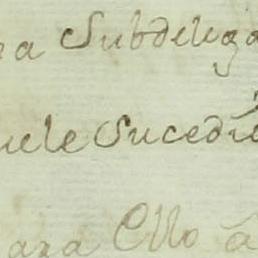 ra Subdelega
uele Sucedie
ara Ello á